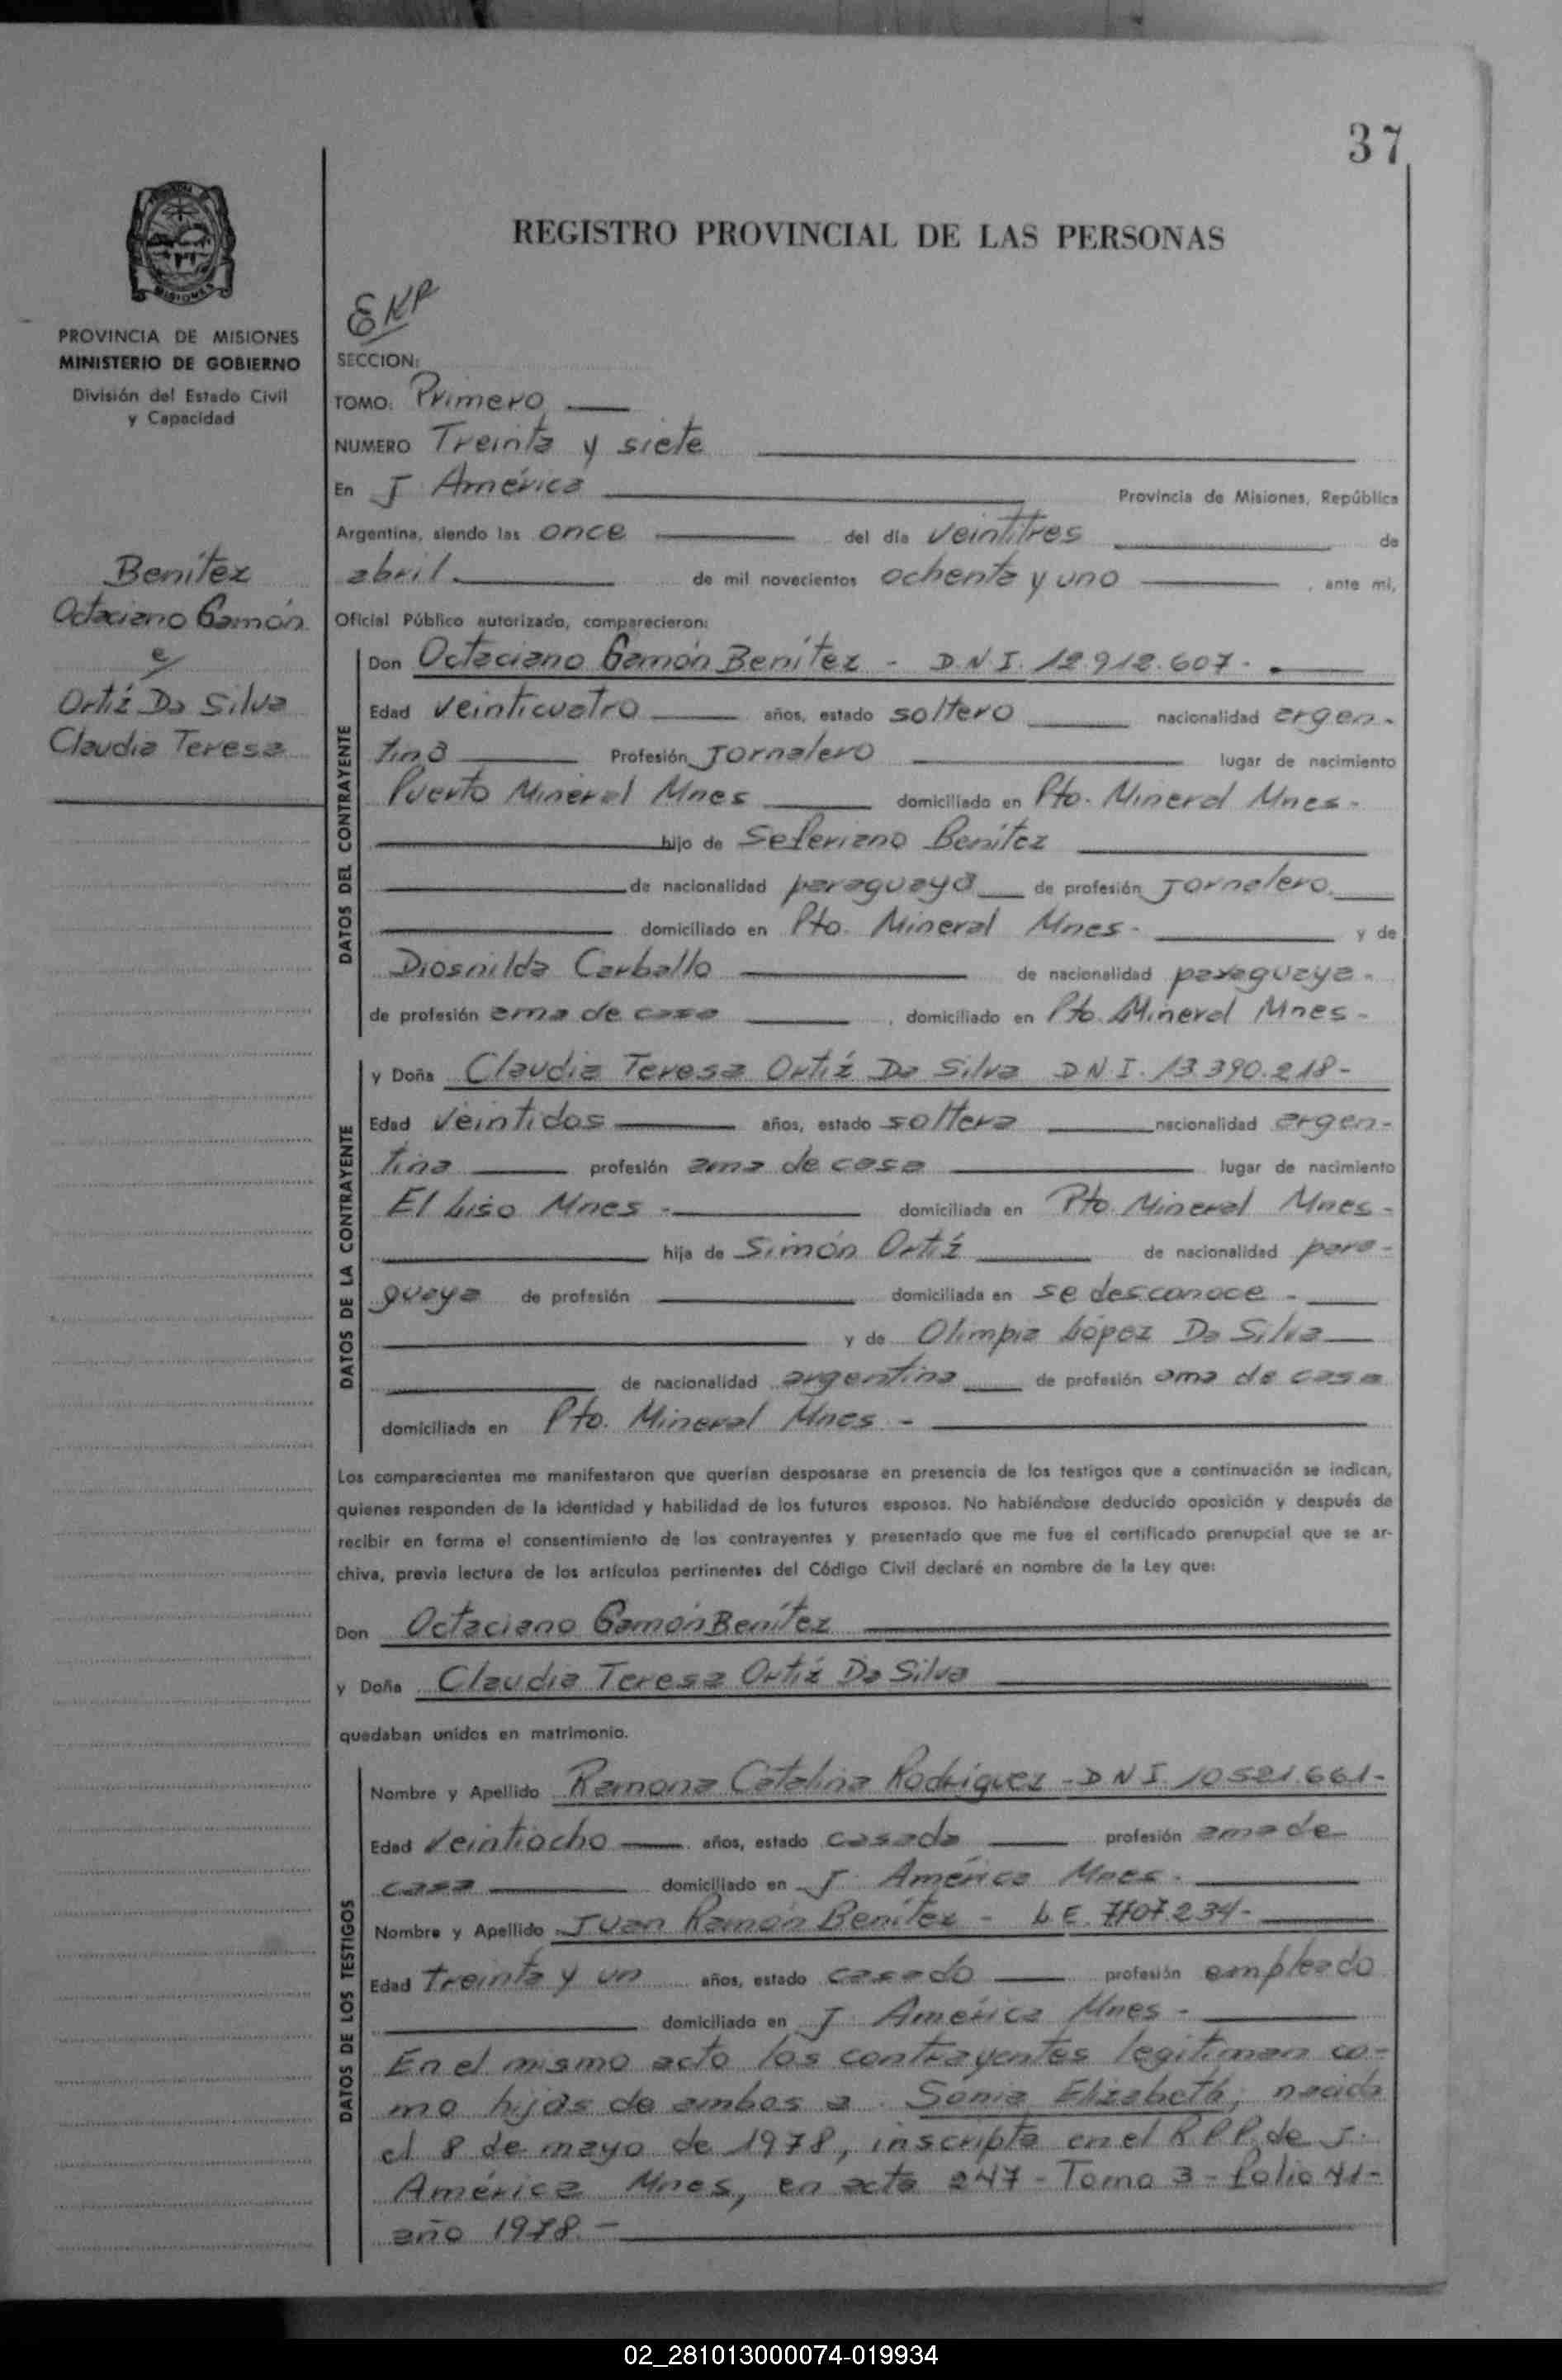 37
REGISTRO PROVINCIAL DE LAS PERSONAS
MISIONES
PROVINCIA DE MISIONES
MINISTERIO DE GOBIERNO
División del Estado Civil
y Capacidad
Benítez
Octaciano Gamón
e/
Ortíz Da Silva
Claudia Teresa
SECCION:
TOMO: Primero
NUMERO Treinta y siete
En J América Provincia de Misiones, República
Argentina, siendo las once del día veintitres de
abril. de mil novecientos ochenta y uno , ante mí,
Oficial Público autorizado, comparecieron:
DATOS DEL CONTRAYENTE
Don Octaciano Gamón Benítez - D.N.I. 12.912.607-
Edad veinticuatro años, estado soltero nacionalidad argen-
tina Profesión Jornalero lugar de nacimiento
Puerto Mineral Mnes domiciliado en Pto. Mineral Mnes-
hijo de Seferiano Benítez
de nacionalidad paraguaya de profesión Jornalero.
domiciliado en Pto. Mineral Mnes- y de
Diosnilda Carballo de nacionalidad paraguaya-
de profesión ama de casa , domiciliado en Pto. Mineral Mnes-
DATOS DE LA CONTRAYENTE
y Doña Claudia Teresa Ortíz Da Silva D N I. 13.390.218-
Edad Veintidos años, estado soltera nacionalidad argen-
tina profesión ama de casa lugar de nacimiento
El Liso Mnes - domiciliada en Pto. Mineral Mnes-
hija de Simón Ortíz de nacionalidad para-
guaya de profesión domiciliada en se desconoce -
y de Olimpia López Da Silva
de nacionalidad argentina de profesión ama de casa
domiciliada en Pto. Mineral Mnes -
Los comparecientes me manifestaron que querían desposarse en presencia de los testigos que a continuación se indican,
quienes responden de la identidad y habilidad de los futuros esposos. No habiéndose deducido oposición y después de
recibir en forma el consentimiento de los contrayentes y presentado que me fue el certificado prenupcial que se ar-
chiva, previa lectura de los artículos pertinentes del Código Civil declaré en nombre de la Ley que:
Don Octaciano Gamón Benítez
y Doña Claudia Teresa Ortíz Da Silva
quedaban unidos en matrimonio.
DATOS DE LOS TESTIGOS
Nombre y Apellido Ramona Catalina Rodríguez - D N I. 10521.661-
Edad Veintiocho años, estado casada profesión ama de
casa domiciliado en J. América Mnes.
Nombre y Apellido Juan Ramón Benítez - L E. 7707.234-
Edad Treinta y un años, estado casado profesión empleado
domiciliado en J. América Mnes -
En el mismo acto los contrayentes legitiman co-
mo hijas de ambos a Sonia Elizabeth, nacida
el 8 de mayo de 1978, inscripta en el R P P. de J.
América Mnes, en acta 247 - Tomo 3 - folio 41-
año 1978.-
02_281013000074-019934